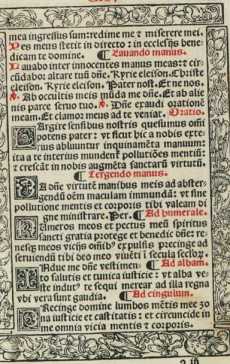 mea ingressus sum: redime me ⁊ miserere mei.
Pes meus stetit in directo: in ecclesijs bene-
dicam te domine. ¶ Lauando manus.
Lauabo inter innocentes manus meas: ⁊ cir-
cūdabo: altare tuū dn̄e. Kyrie eleison. Christe
eleison. Kyrie eleison. Pater nost. Et ne nos.
℣. Ab occultis meis mūda me dn̄e. ℟. Et ab alie
nis parce seruo tuo. ℣. Dn̄e exaudi orationē
meam. Et clamor meus ad te veniat. Oratio.
Largire sensibus nostris quesumus om̄i
potens pater: vt sicut hic a nobis exte
rius abluuntur inquinamēta manuum:
ita a te interius mundent̄ pollutiões mentiū:
⁊ crescat in nobis augmēta sanctarū virtutū.
¶ Tergendo manus.
Da dn̄e virtutē manibus meis ad abster-
gendū oēm maculam immundā: vt sine
pollutione mentis et corporis tibi valeam di
gne ministrare. Per. ¶ Ad humerale.
Humeros meos et pectus meū spiritus
sancti gratia protege et benedic dn̄e: re-
nesq̄ meos vicijs om̄ibꝰ expulsis precinge ad
seruiendū tibi deo meo viuēti ī secula seculoꝝ.
Indue me dn̄e vestimen- ¶ Ad albam.
to salutis et tunica iusticie: vt alba ve-
ste indutꝰ te sequi merear ad illa regna
vbi vera sunt gaudia. ¶ Ad cingulum.
Precinge domine lumbos mētis mee zo
na iusticie et castitatis: et circuncide in
me omnia vicia mentis ⁊ corporis.